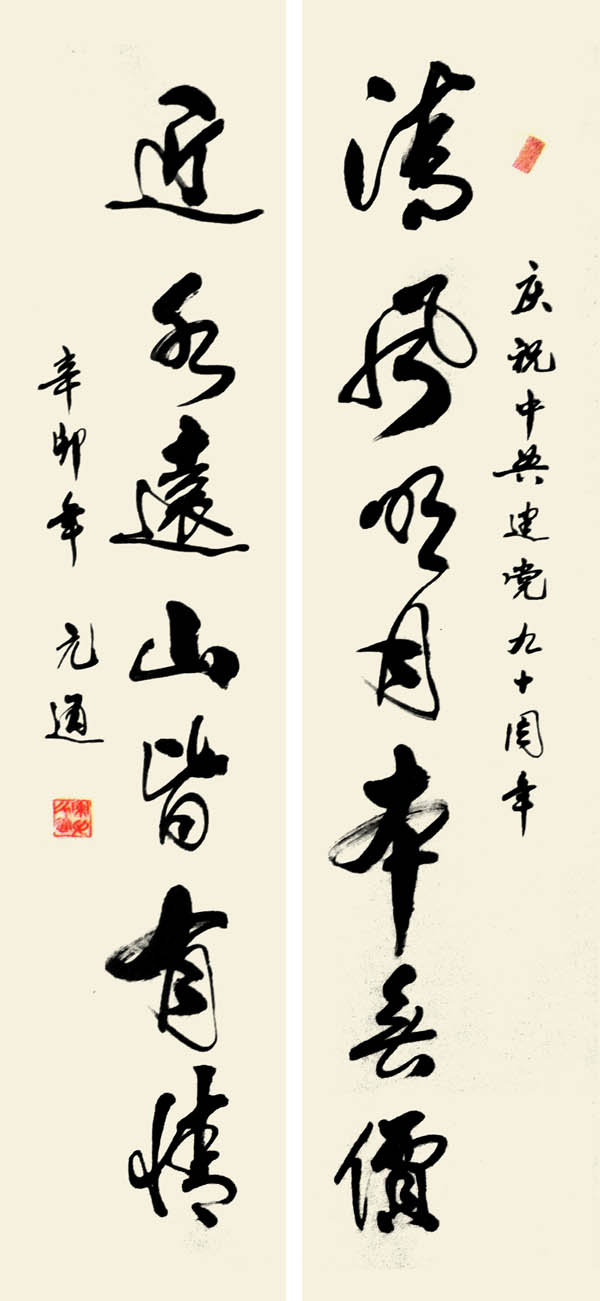 庆祝中共建党九十周年
清风明月本無價
近水遠山皆有情
辛卯年 元通